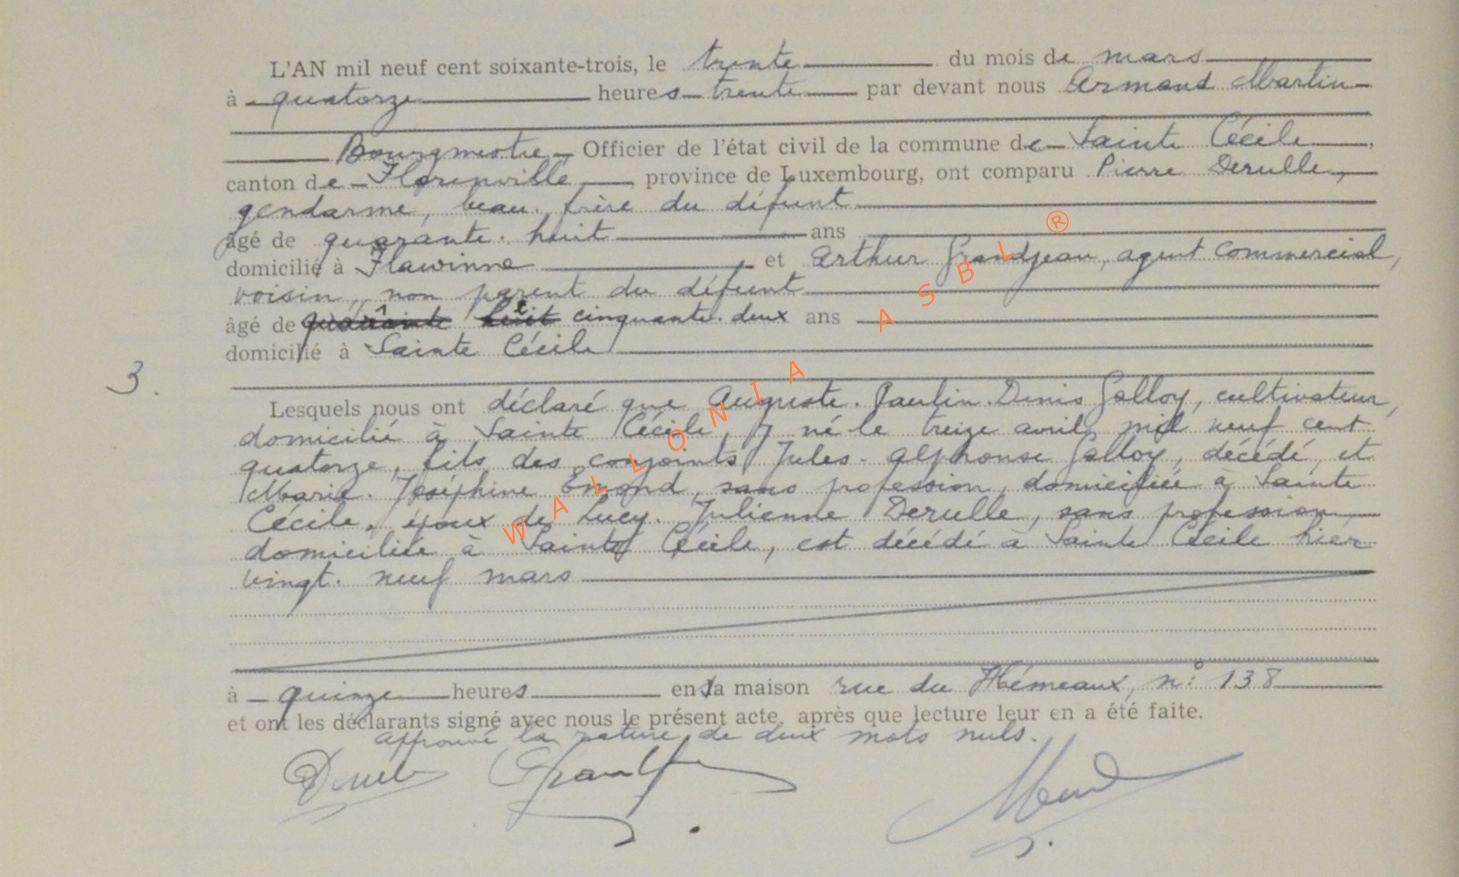 L'AN mil neuf cent soixante-trois, le trente du mois de mars
à quatorze heures trente par devant nous Armand Martin
Bourgmestre Officier de l'état civil de la commune de Sainte Cécile,
canton de Florenville, province de Luxembourg, ont comparu Pierre Derulle,
gendarme, beau-frère du défunt
âgé de quarante-huit ans
domicilié à Flawinne et Arthur Grandjean, agent commercial,
voisin, non parent du défunt
âgé de quarante huit cinquante-deux ans
domicilié à Sainte Cécile
3.
Lesquels nous ont déclaré que Auguste-Paulin-Denis Galloy, cultivateur,
domicilié à Sainte Cécile, y né le treize avril mil neuf cent
quatorze, fils des conjoints Jules-Alphonse Galloy, décédé, et
Marie-Joséphine Émond, sans profession, domiciliée à Sainte
Cécile, époux de Lucy-Julienne Derulle, sans profession,
domiciliée à Sainte Cécile, est décédé à Sainte Cécile hier
vingt-neuf mars
à quinze heures en sa maison rue du Hémeaux, n° 138
et ont les déclarants signé avec nous le présent acte, après que lecture leur en a été faite.
Approuvé la rature de deux mots nuls.
WALLONIA ASBL ®